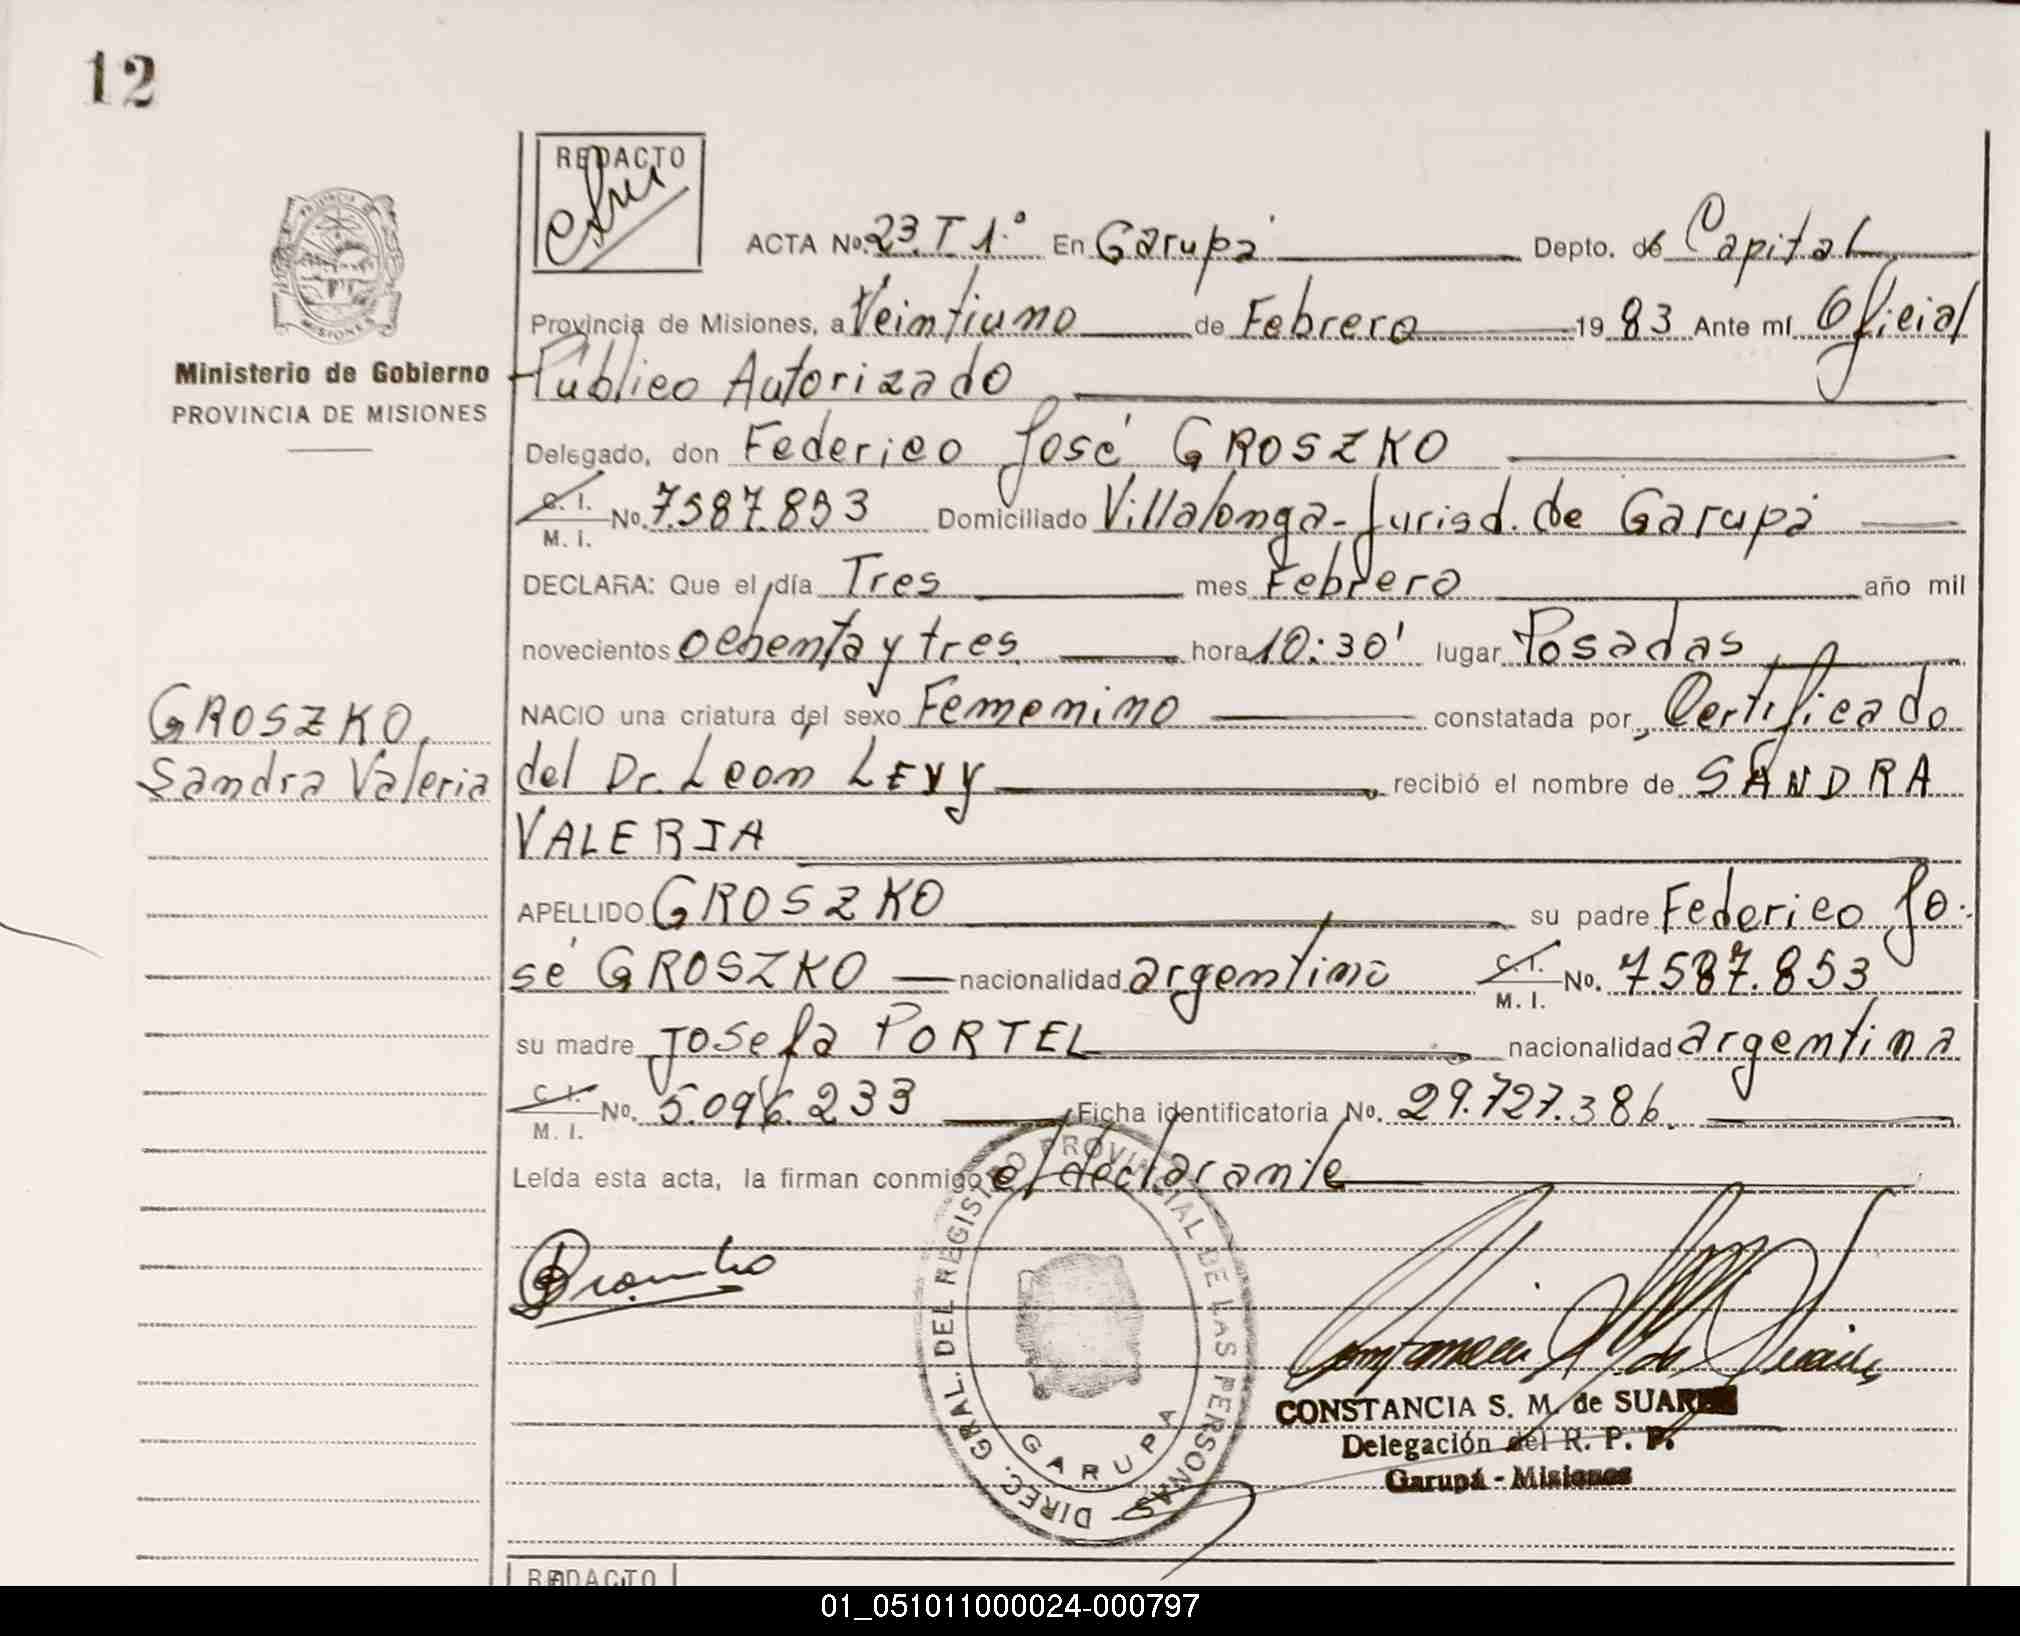 12
REDACTO
ACTA No. 23. T 1.° En Garupá Depto. de Capital
Provincia de Misiones, a Veintiuno de Febrero 1983 Ante mí Oficial
Público Autorizado
Ministerio de Gobierno
PROVINCIA DE MISIONES
MISIONES
Delegado, don Federico José GROSZKO
C. I. M. I. No. 7.587.853 Domiciliado Villalonga-Jurisd. de Garupá
DECLARA: Que el día Tres mes Febrero año mil
novecientos ochenta y tres hora 10:30' lugar Posadas
GROSZKO,
Sandra Valeria
NACIO una criatura del sexo Femenino constatada por, Certificado
del Dr. Leon LEVY, recibió el nombre de SANDRA
VALERIA
APELLIDO GROSZKO su padre Federico Jo-
sé GROSZKO nacionalidad argentino C. I. M. I. No. 7587.853
su madre Josefa PORTEL nacionalidad argentina
C. I. M. I. No. 5.096.233 Ficha identificatoria No. 29.727.386.
Leída esta acta, la firman conmigo el declarante
DIREC. GRAL. DEL REGISTRO PROVINCIAL DE LAS PERSONAS
GARUPA
CONSTANCIA S. M. de SUAREZ
Delegación del R. P. P.
Garupá - Misiones
REDACTO
01_051011000024-000797